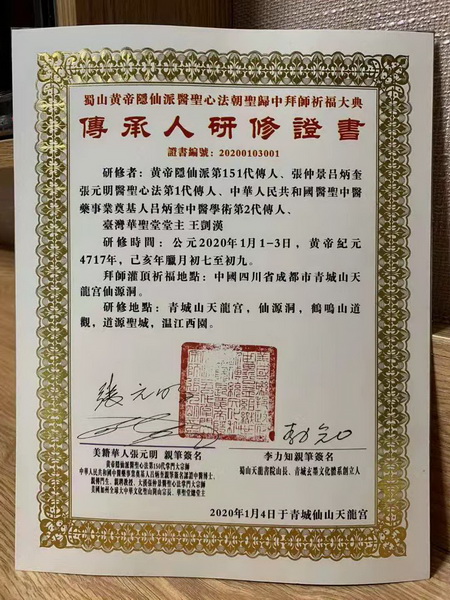 蜀山黄帝隱仙派醫聖心法朝聖歸中拜師祈福大典
傳承人研修證書
證書編號：20200103001
研修者：黃帝隱仙派第151代傳人、張仲景呂炳奎
張元明醫聖心法第1代傳人、中華人民共和國醫聖中醫
藥事業奠基人呂炳奎中醫學術第2代傳人、
臺灣華聖堂堂主 王釗漢
研修時間：公元2020年1月1-3日，黃帝紀元
4717年，己亥年臘月初七至初九。
拜師灌頂祈福地點：中國四川省成都市青城山天
龍宮仙源洞。
研修地點：青城山天龍宮，仙源洞，鶴鳴山道
觀，道源聖城，温江西園。
張元明
美籍華人張元明 親筆簽名
李力知親筆簽名
黃帝隱仙派醫聖心法第150代掌門大宗師
蜀山天龍書院山長、青城玄墨文化體系創立人
2020年1月4日于青城仙山天龍宫